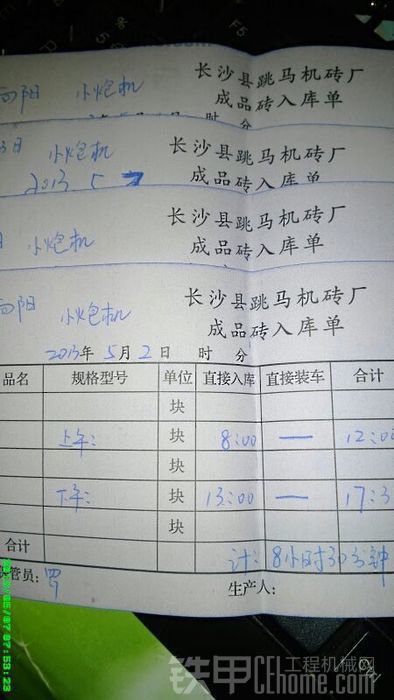 长沙县跳马机砖厂
向阳 小炮机
成品砖入库单
时 分
长沙县跳马机砖厂
小炮机
成品砖入库单
2013. 5 7
长沙县跳马机砖厂
小炮机
成品砖入库单
长沙县跳马机砖厂
向阳 小炮机
成品砖入库单
2013年 5月 2日 时 分
品名 规格型号 单位 直接入库 直接装车 合计
块
上午: 块 8:00 — 12:00
块
下午: 块 13:00 — 17:3
块
合计 计: 8小时30分钟
管员: 罗 生产人:
2013/05/07 07:53:23
铁甲 工程机械网
CEhome.com